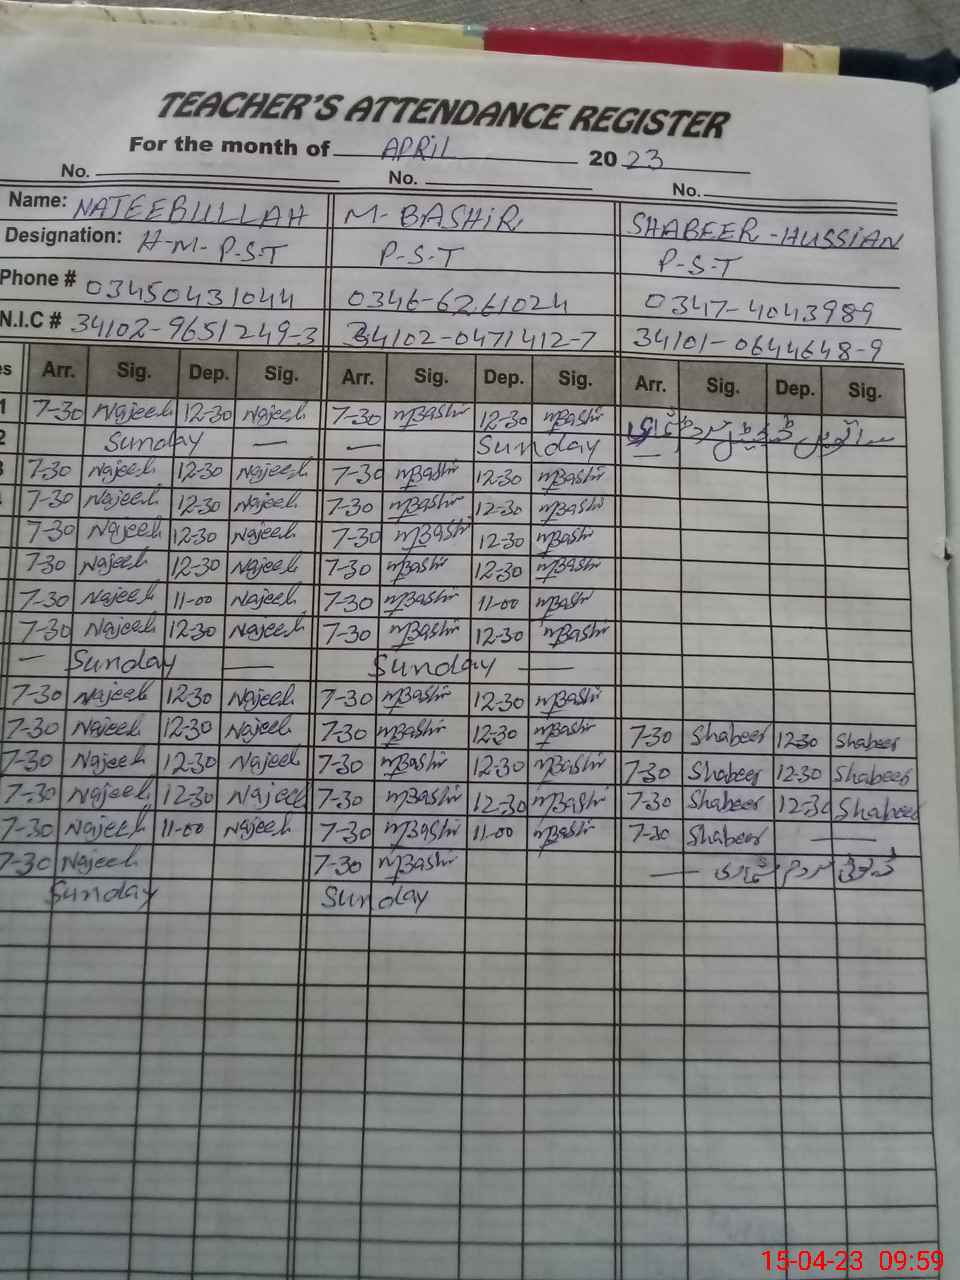 TEACHER'S ATTENDANCE REGISTER
For the month of APRIL 2023
No. No. No.
Name: NAJEEBULLAH M- BASHIR SHABEER-HUSSIAN
Designation: H-M- P-S-T P-S-T P-S-T
Phone # 03450431044 0346-6261024 0347-4043989
N.I.C # 34102-9651249-3 34102-0471412-7 34101-0644648-9
es Arr. Sig. Dep. Sig. Arr. Sig. Dep. Sig. Arr. Sig. Dep. Sig.
1 7-30 Najeeb 12-30 Najeeb 7-30 MBashir 12-30 MBashir
2 Sunday — — Sunday —
3 7-30 Najeeb 12-30 Najeeb 7-30 MBashir 12-30 MBashir
7-30 Najeeb 12-30 Najeeb 7-30 MBashir 12-30 MBashir
7-30 Najeeb 12-30 Najeeb 7-30 MBashir 12-30 MBashir
7-30 Najeeb 12-30 Najeeb 7-30 MBashir 12-30 MBashir
7-30 Najeeb 11-00 Najeeb 7-30 MBashir 11-00 MBashir
7-30 Najeeb 12-30 Najeeb 7-30 MBashir 12-30 MBashir
— Sunday — Sunday —
7-30 Najeeb 12-30 Najeeb 7-30 MBashir 12-30 MBashir
7-30 Najeeb 12-30 Najeeb 7-30 MBashir 12-30 MBashir 7-30 Shabeer 12-30 Shabeer
7-30 Najeeb 12-30 Najeeb 7-30 MBashir 12-30 MBashir 7-30 Shabeer 12-30 Shabeer
7-30 Najeeb 12-30 Najeeb 7-30 MBashir 12-30 MBashir 7-30 Shabeer 12-30 Shabeer
7-30 Najeeb 11-00 Najeeb 7-30 MBashir 11-00 MBashir 7-30 Shabeer —
7-30 Najeeb 7-30 MBashir —
Sunday Sunday
15-04-23 09:59